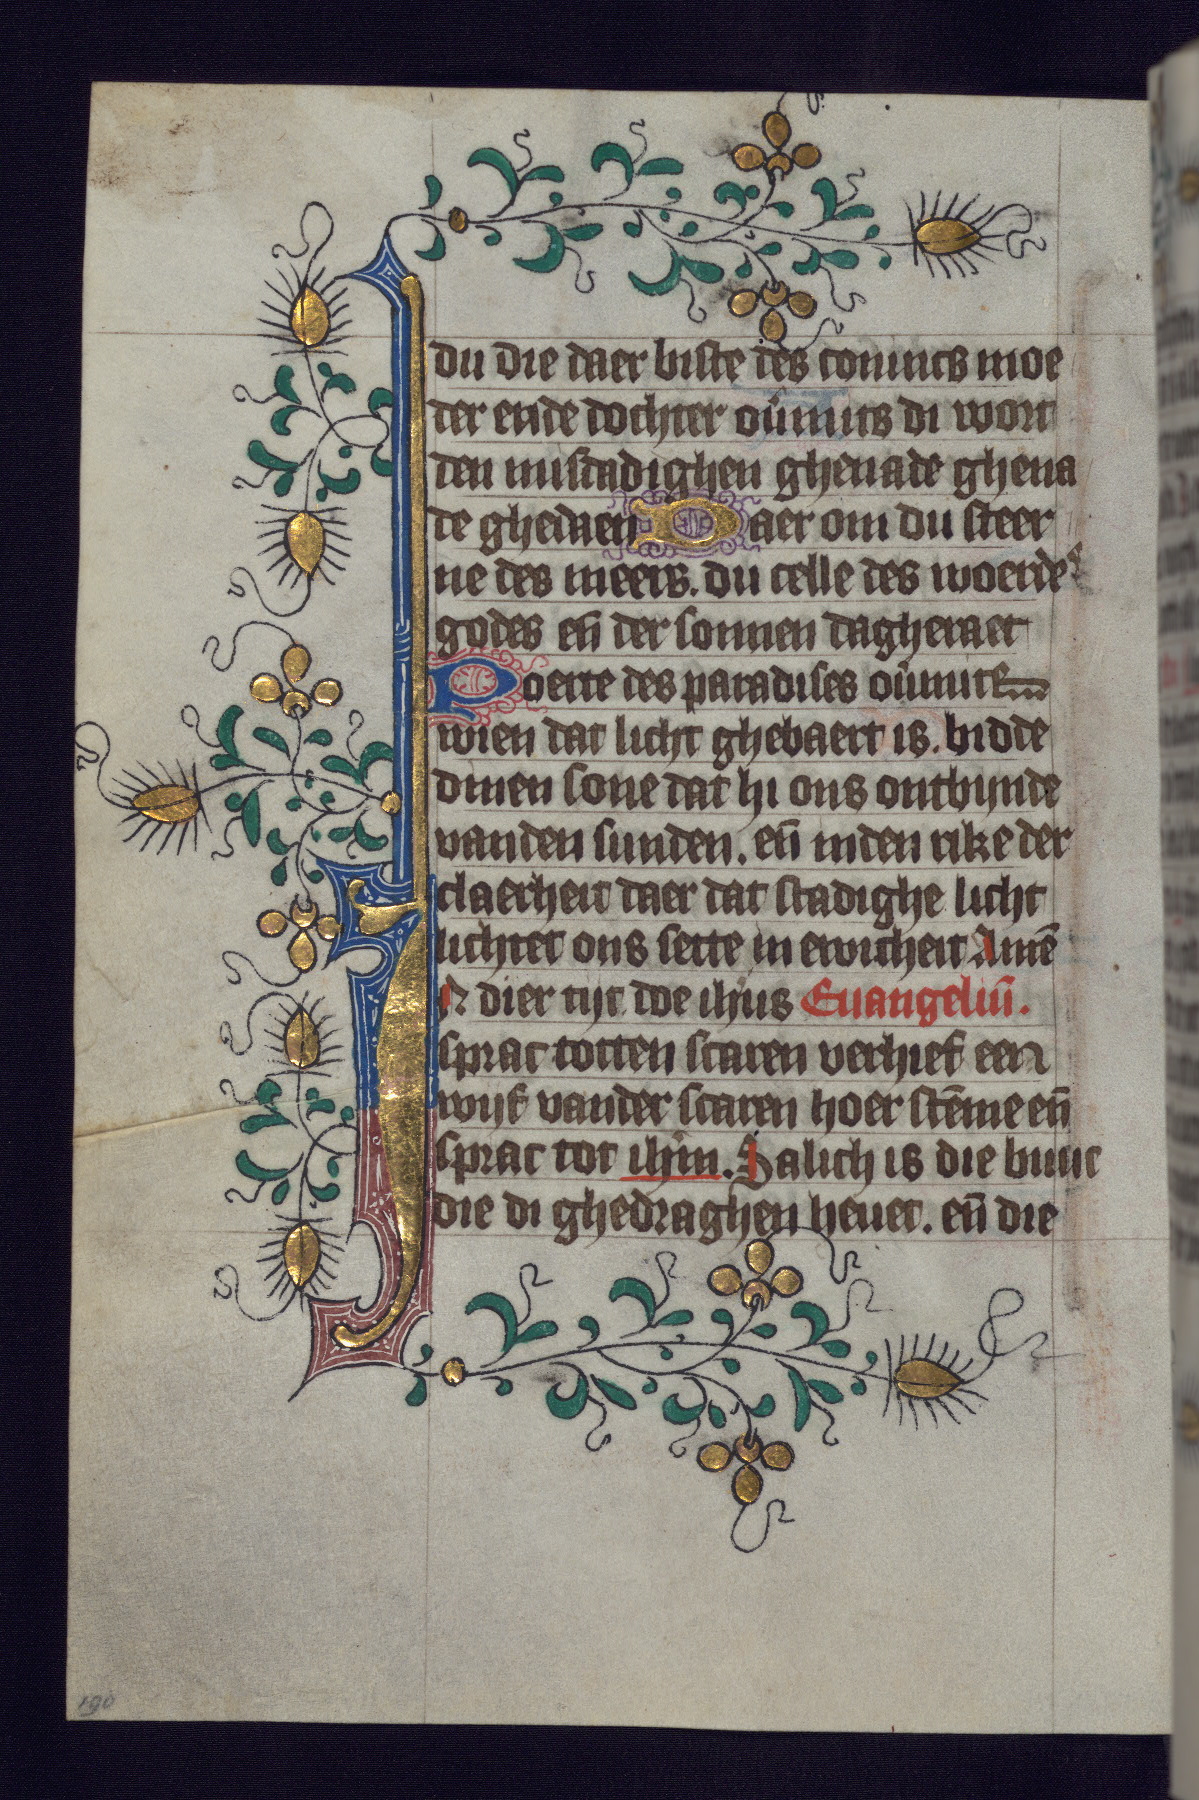 du die daer biste des conincs moe
der ende dochter ou̇mits di wort
den mistadighen ghenade ghena
de ghedaen Daer om du steer
ne des meers. du celle des woerde
godes en̄ der sonnen dagheraet
Poerte des paradises ou̇mits
wien dat licht ghebaert is. bidde
dinen sone dat hi ons ontbijnde
vanden sunden. en̄ inden rike der
claerheit daer dat stadighe licht
lichtet ons sette in ewicheit Amē
IN dier tijt doe ihūs Euangeliū.
sprac totten scaren verhief een
wijf vander scaren hoer stēme en̄
sprac tot ihm̄. Salich is die buuc
die di ghedraghen heuet. en̄ die
190